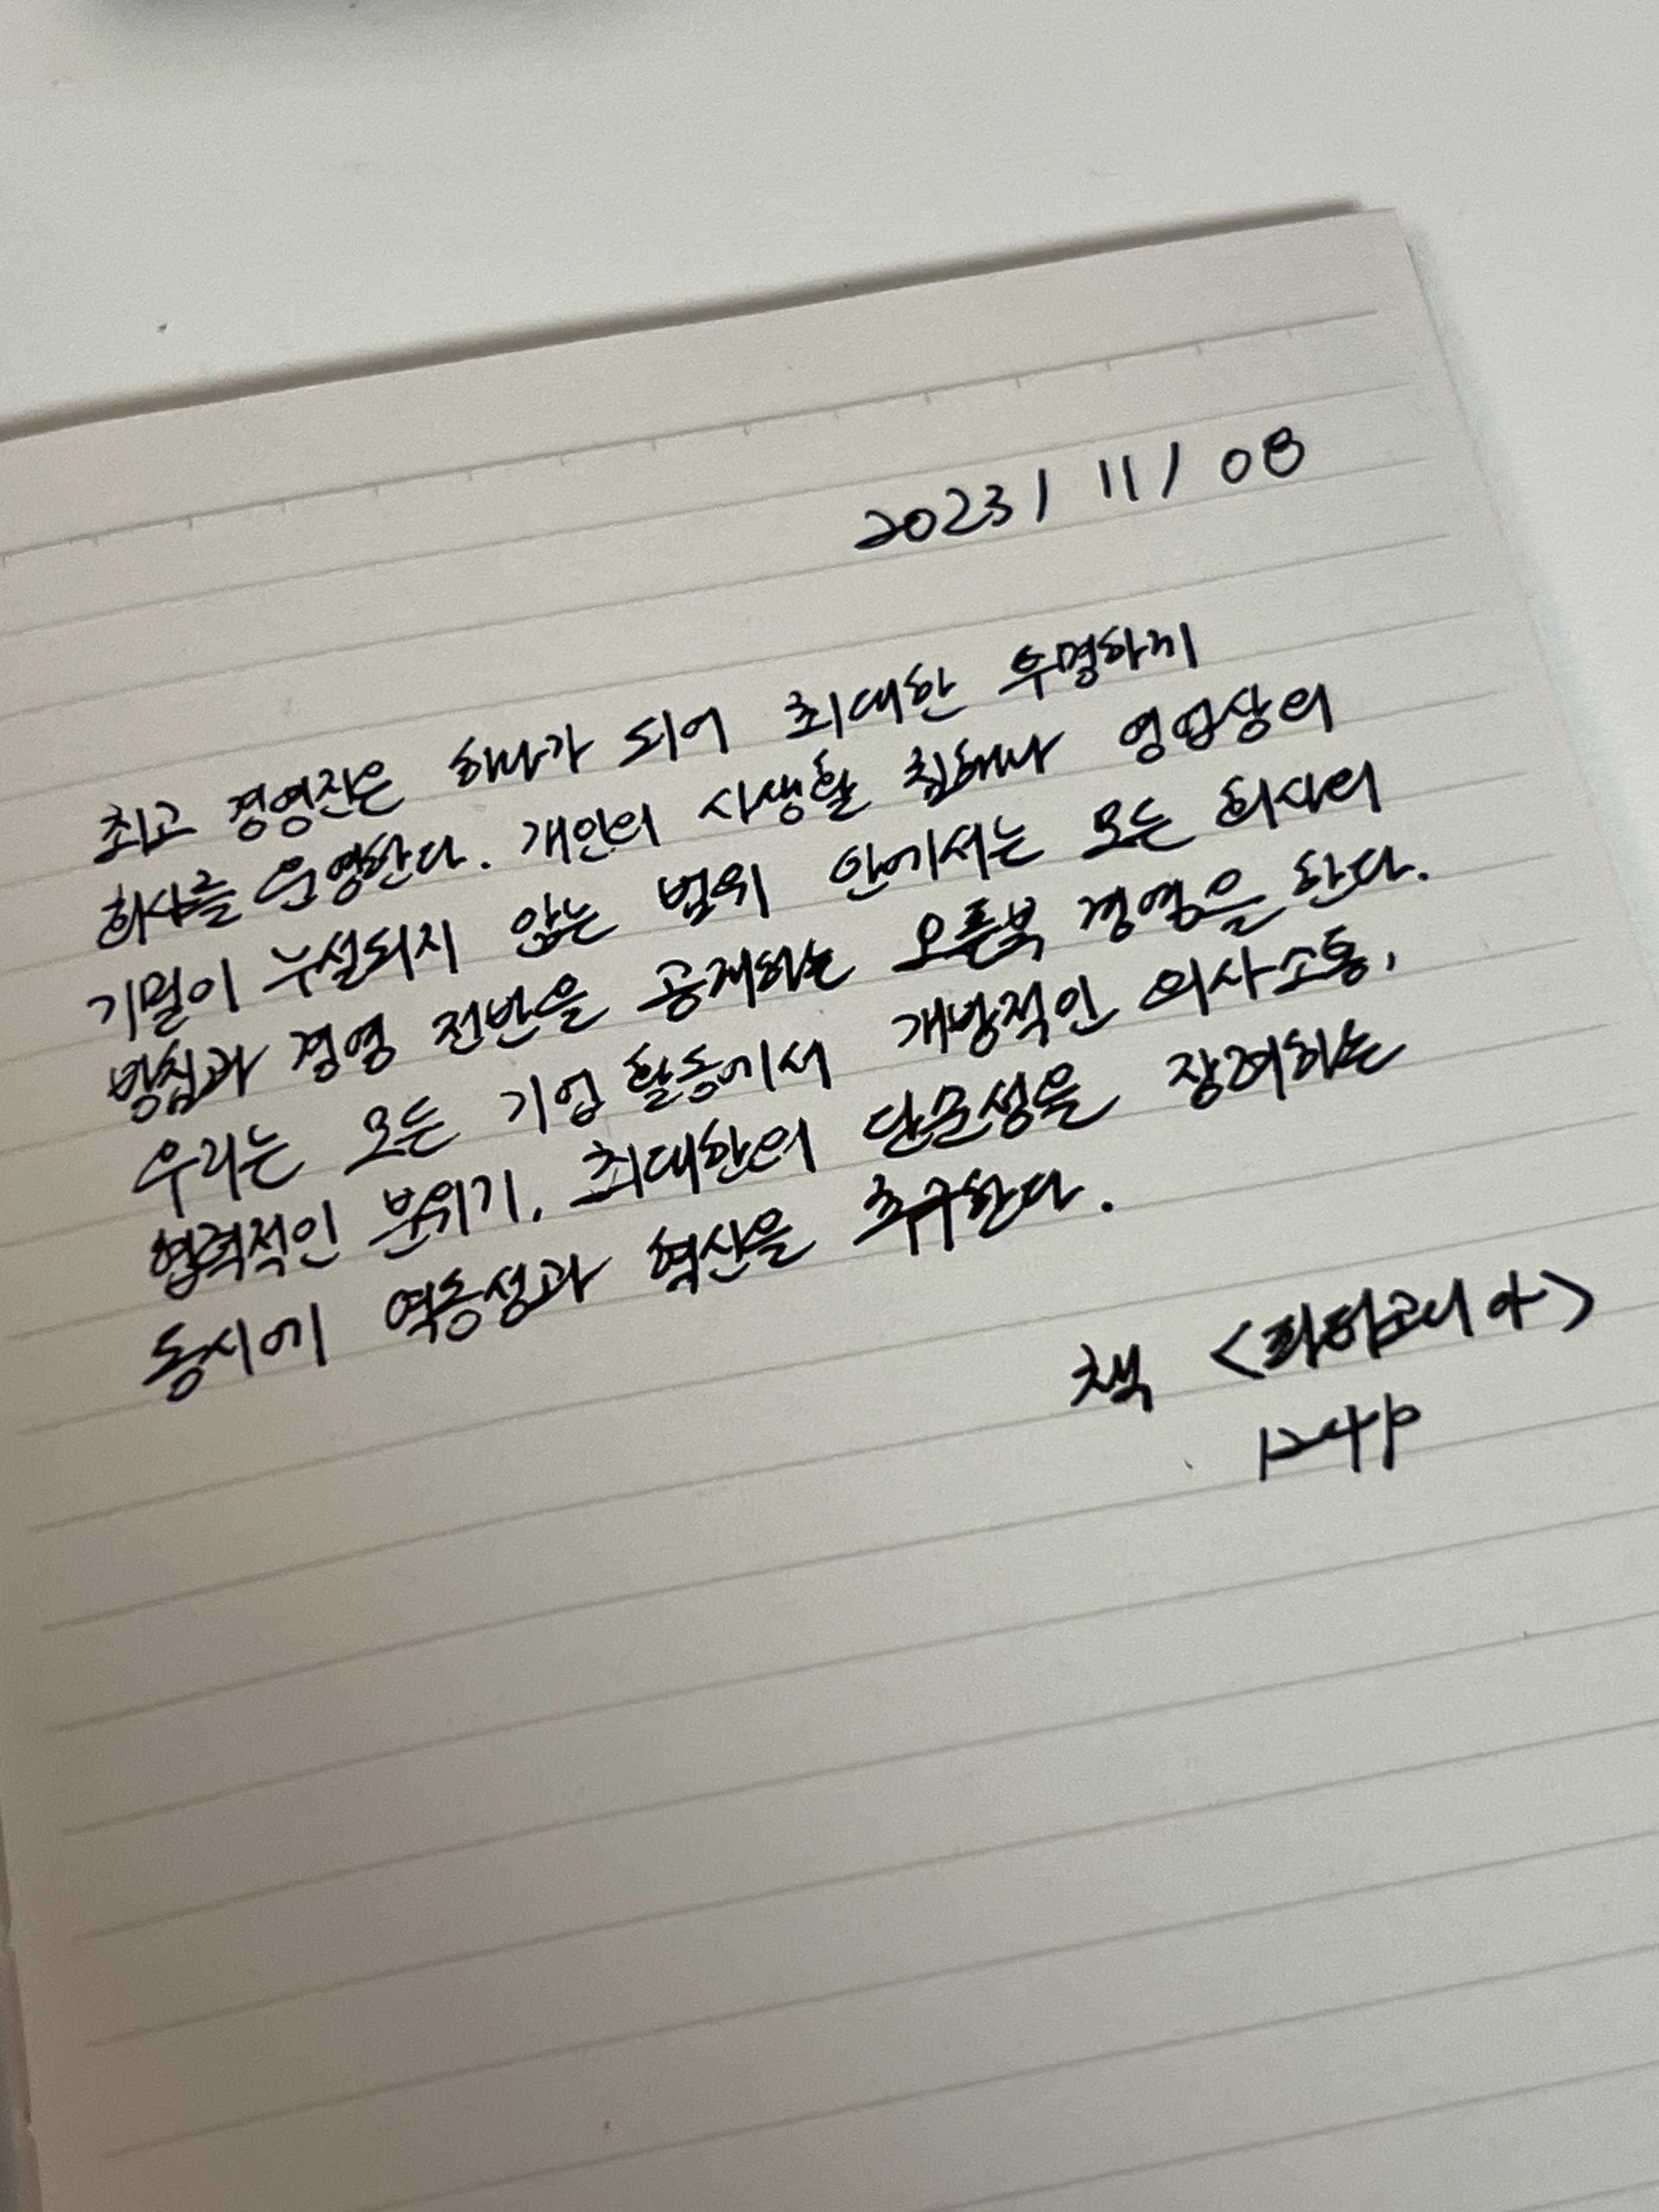 2023/11/08
최고 경영진은 하나가 되어 최대한 투명하게
회사를 운영한다. 개인의 사생활 침해나 영업상의
기밀이 누설되지 않는 범위 안에서는 모든 회사의
방침과 경영 전반을 공개하는 오픈북 경영을 한다.
우리는 모든 기업 활동에서 개방적인 의사소통,
협력적인 분위기, 최대한의 단순성을 장려하는
동시에 역동성과 혁신을 추구한다.
책 <파타고니아>
124p